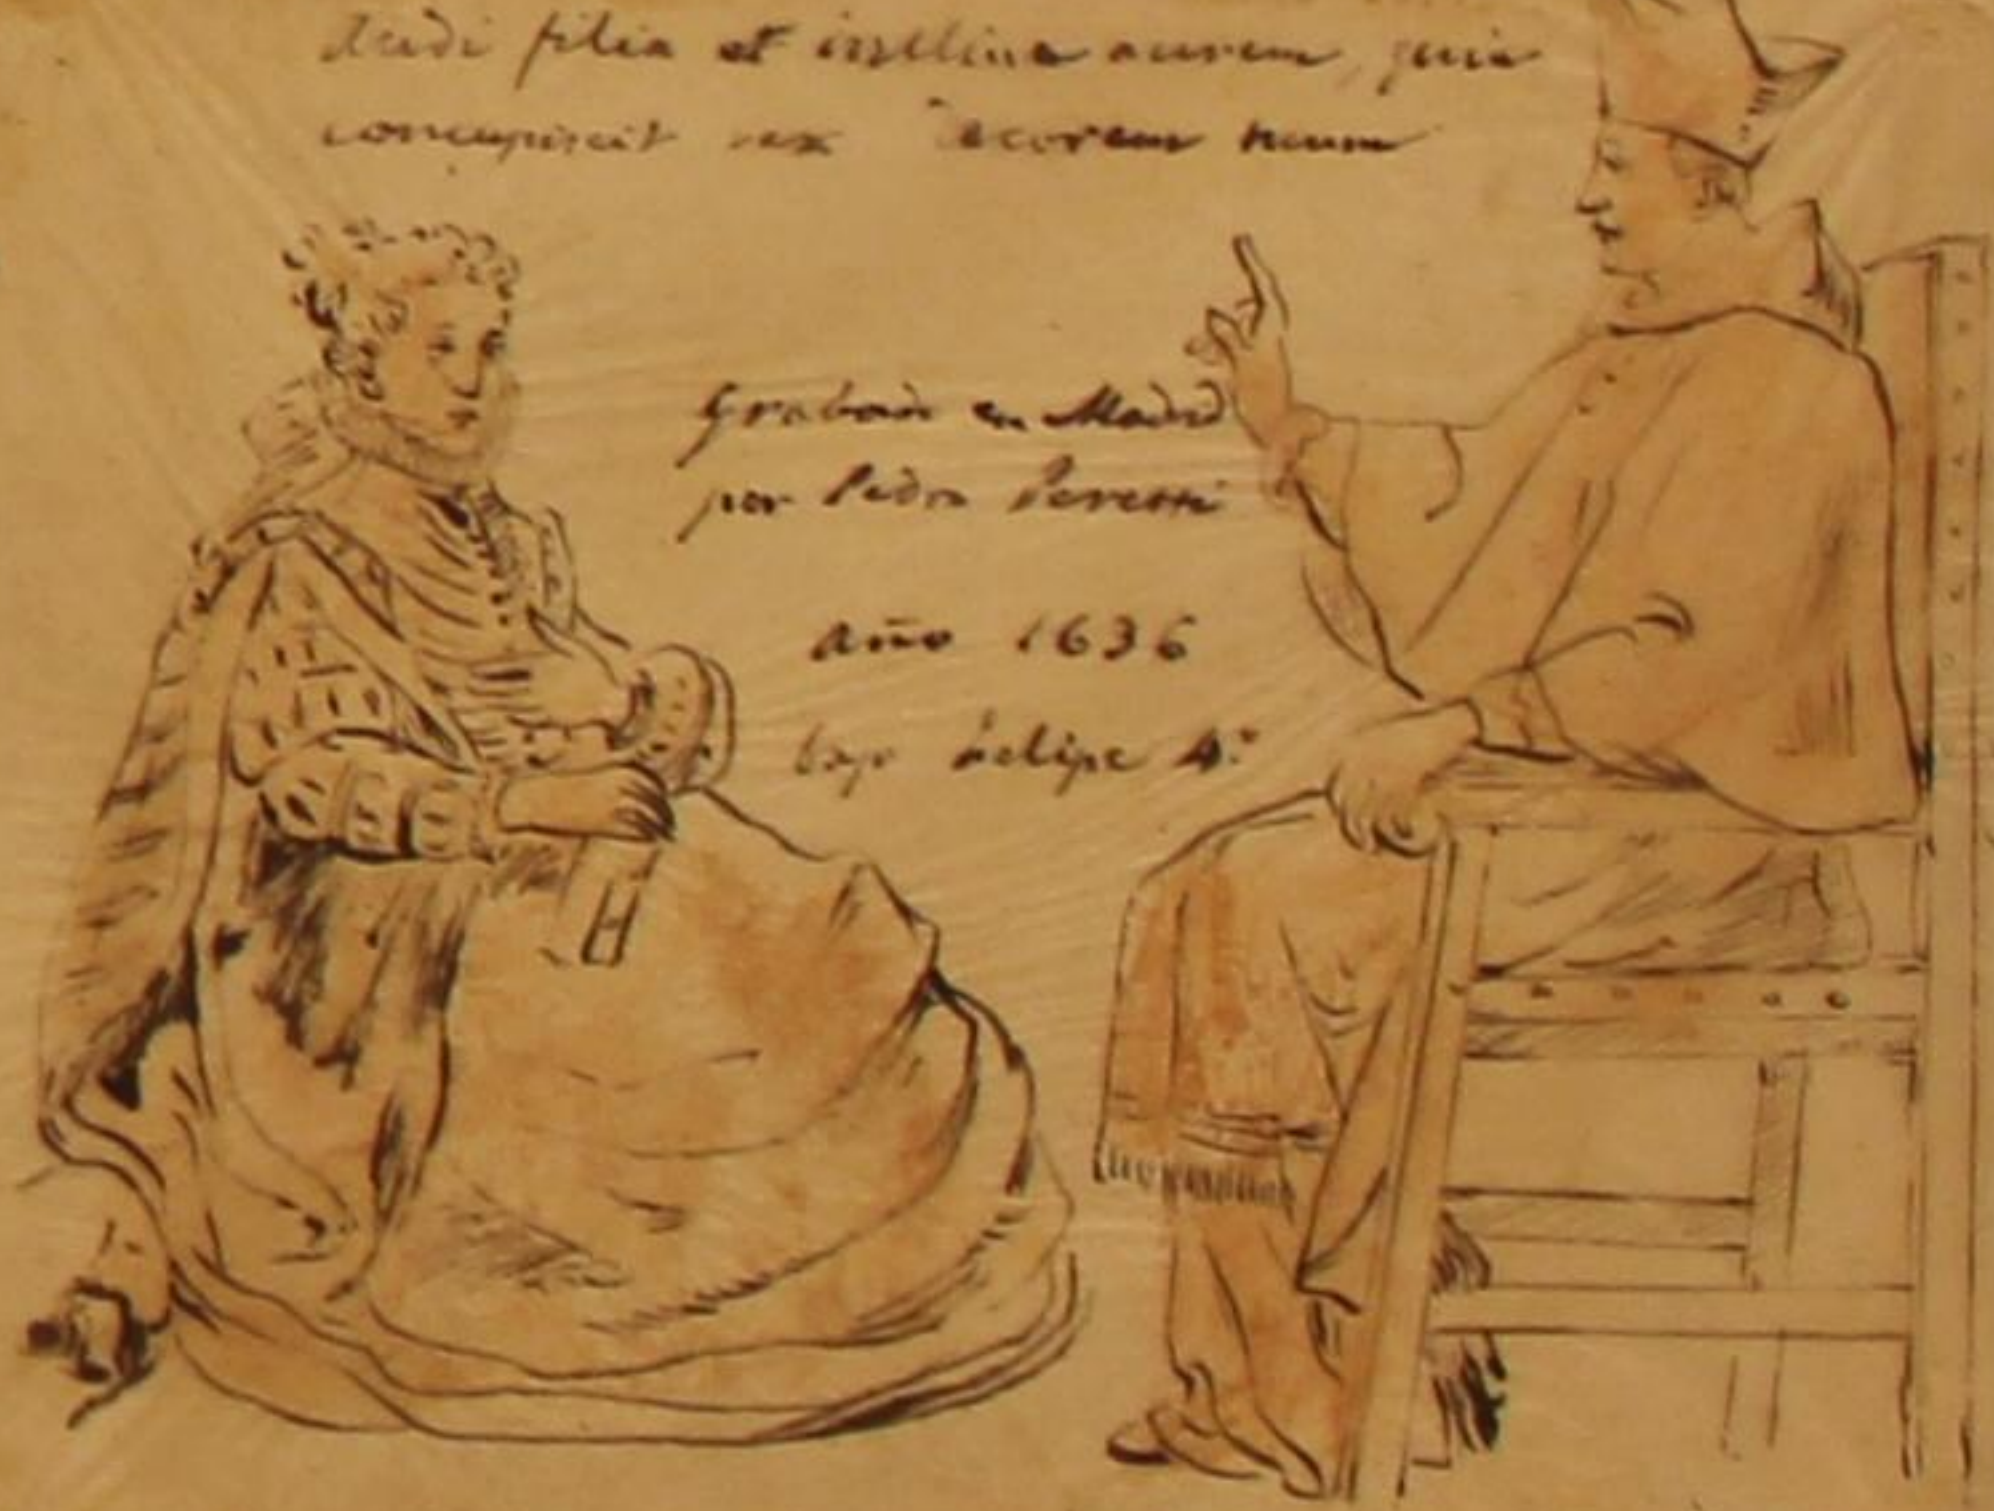 Audi filia et inclina aurem, quia
concupiscit rex decorem tuum
Grabado en Madrid
por Pedro Peretti
año 1636
bajo Felipe 4.º